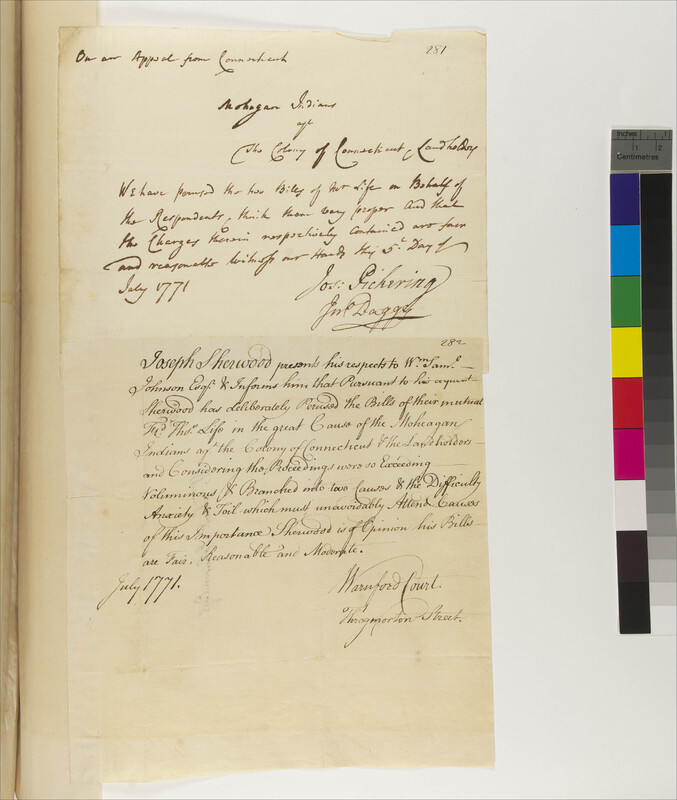 281
On an Appeal from Connecticut
Mohagan Indians
agt
The Colony of Connecticut, & Landholders
We have perused the two Bills of Mr Life on Behalf of
the Respondents, think them very proper And that
the Charges therein respectively contained are fair
and reasonable Witness our Hands this 5th Day of
July 1771
Jos: Pickering
Jno Dagge
282
Joseph Sherwood presents his respects to Wm Saml
Johnson Esqr & Informs him that Pursuant to his request
Sherwood has deliberately Perused the Bills of their mutual
Frd Thos Life in the great Cause of the Moheagan
Indians agt the Colony of Connecticut & the Landholders
and Considering the Proceedings were so Exceeding
Voluminous & Branched into two Causes & the Difficulty
Anxiety & Toil which must unavoidably Attend Causes
of this Importance Sherwood is of Opinion his Bills
are Fair, Reasonable and Moderate.
July 1771.
Warnford Court.
Throgmorton Street.
Inches
1
2
Centimetres